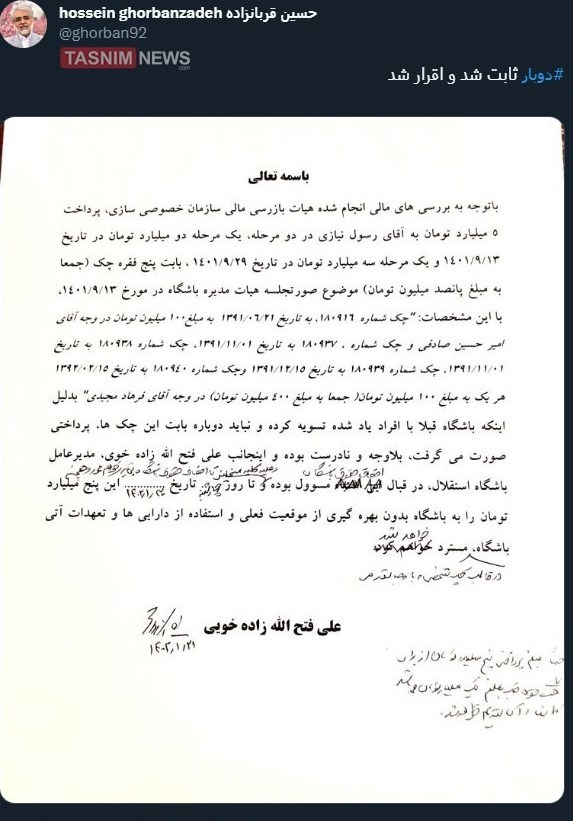 hossein ghorbanzadeh حسین قربانزاده
@ghorban92
TASNIM NEWS
.com
#دوبار ثابت شد و اقرار شد
باسمه تعالی
باتوجه به بررسی های مالی انجام شده هیات بازرسی مالی سازمان خصوصی سازی، پرداخت
۵ میلیارد تومان به آقای رسول نیازی در دو مرحله، یک مرحله دو میلیارد تومان در تاریخ
۱۴۰۱/۹/۱۳ و یک مرحله سه میلیارد تومان در تاریخ ۱۴۰۱/۹/۲۹ ، بابت پنج فقره چک (جمعا
به مبلغ پانصد میلیون تومان) موضوع صورتجلسه هیات مدیره باشگاه در مورخ ۱۴۰۱/۹/۱۳،
با این مشخصات: "چک شماره ۱۸۰۹۱۶، به تاریخ ۱۳۹۱/۰۶/۲۱ به مبلغ۱۰۰ میلیون تومان در وجه آقای
امیر حسین صادقی و چک شماره ، ۱۸۰۹۳۷ به تاریخ ۱۳۹۱/۱۱/۰۱، چک شماره ۱۸۰۹۳۸ به تاریخ
۱۳۹۱/۱۱/۰۱، چک شماره ۱۸۰۹۳۹ به تاریخ ۱۳۹۱/۱۲/۱۵ وچک شماره ۱۸۰۹۴۰ به تاریخ ۱۳۹۲/۰۲/۱۵
هر یک به مبلغ ۱۰۰ میلیون تومان( جمعا به مبلغ ۴۰۰ میلیون تومان) در وجه آقای فرهاد مجیدی" بدلیل
اینکه باشگاه قبلا با افراد یاد شده تسویه کرده و نباید دوباره بابت این چک ها، پرداختی
صورت می گرفت، بلاوجه و نادرست بوده و اینجانب علی فتح الله زاده خوی، مدیرعامل
باشگاه استقلال، در قبال مسوول بوده و تا روز تاریخ ۱۴۰۲/۱/۲۲ این پنج میلیارد
تومان را به باشگاه بدون بهره گیری از موقعیت فعلی و استفاده از دارایی ها و تعهدات آتی
باشگاه، مسترد خواهد شد
در قالب چک شخصی
علی فتح الله زاده خویی
۱۴۰۲,۱,۲۱
مبلغ